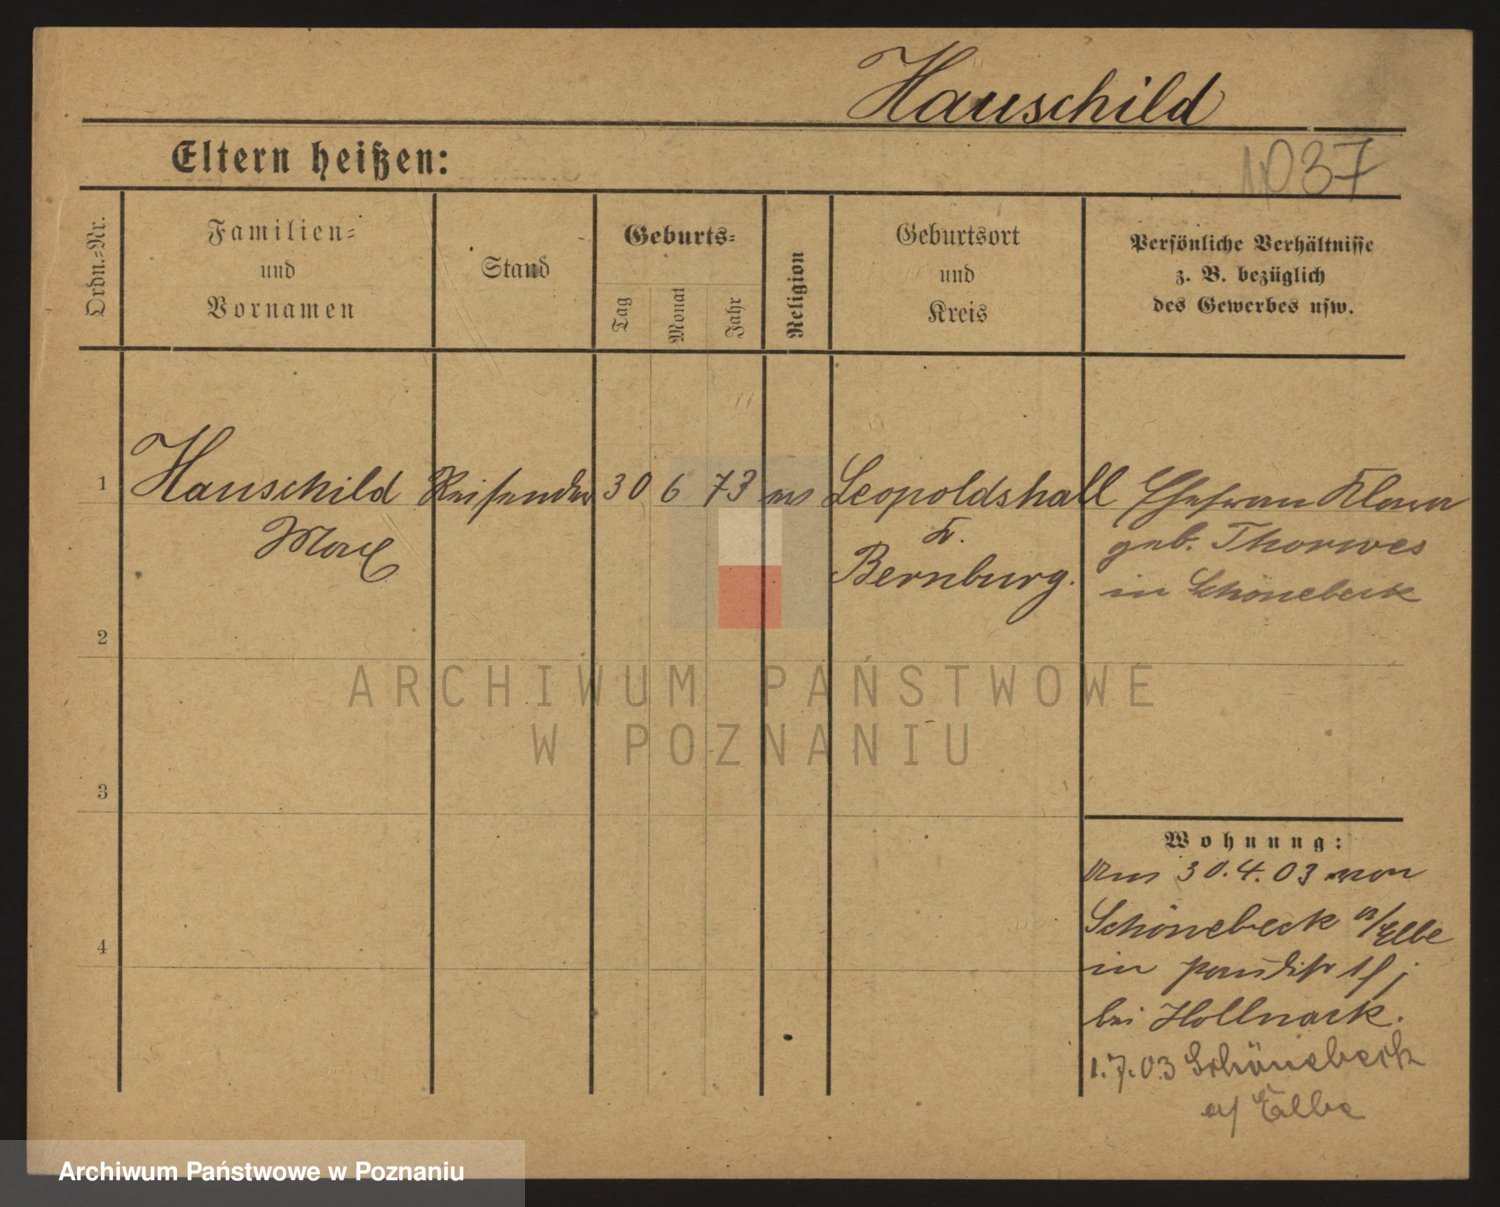 Hauschild
Eltern heißen:
1037
Ordn.-Nr.
Familien-
und
Vornamen
Stand
Geburts-
Tag
Monat
Jahr
Religion
Geburtsort
und
Kreis
Persönliche Verhältnisse
z. B. bezüglich
des Gewerbes usw.
1 Hauschild Reisender 30 6 73 ev Leopoldshall Ehefrau Klara
Max Kr. geb. Thorwes
Bernburg. in Schönebeck
2
3
4
Wohnung:
Am 30.4.03 von
Schönebeck a/Elbe
in
bei Hollnack.
1.7.03 Schönebeck
a/ Elbe
ARCHIWUM PAŃSTWOWE
W POZNANIU
Archiwum Państwowe w Poznaniu